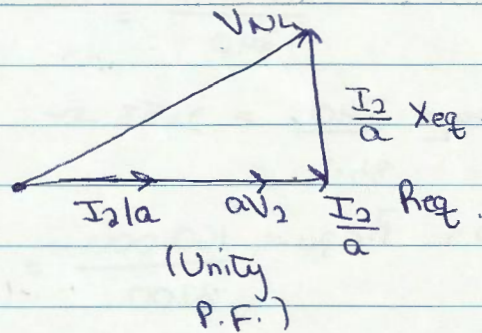 VNL
I2/a Xeq
I2/a aV2 I2/a Req.
(Unity
P.F.)